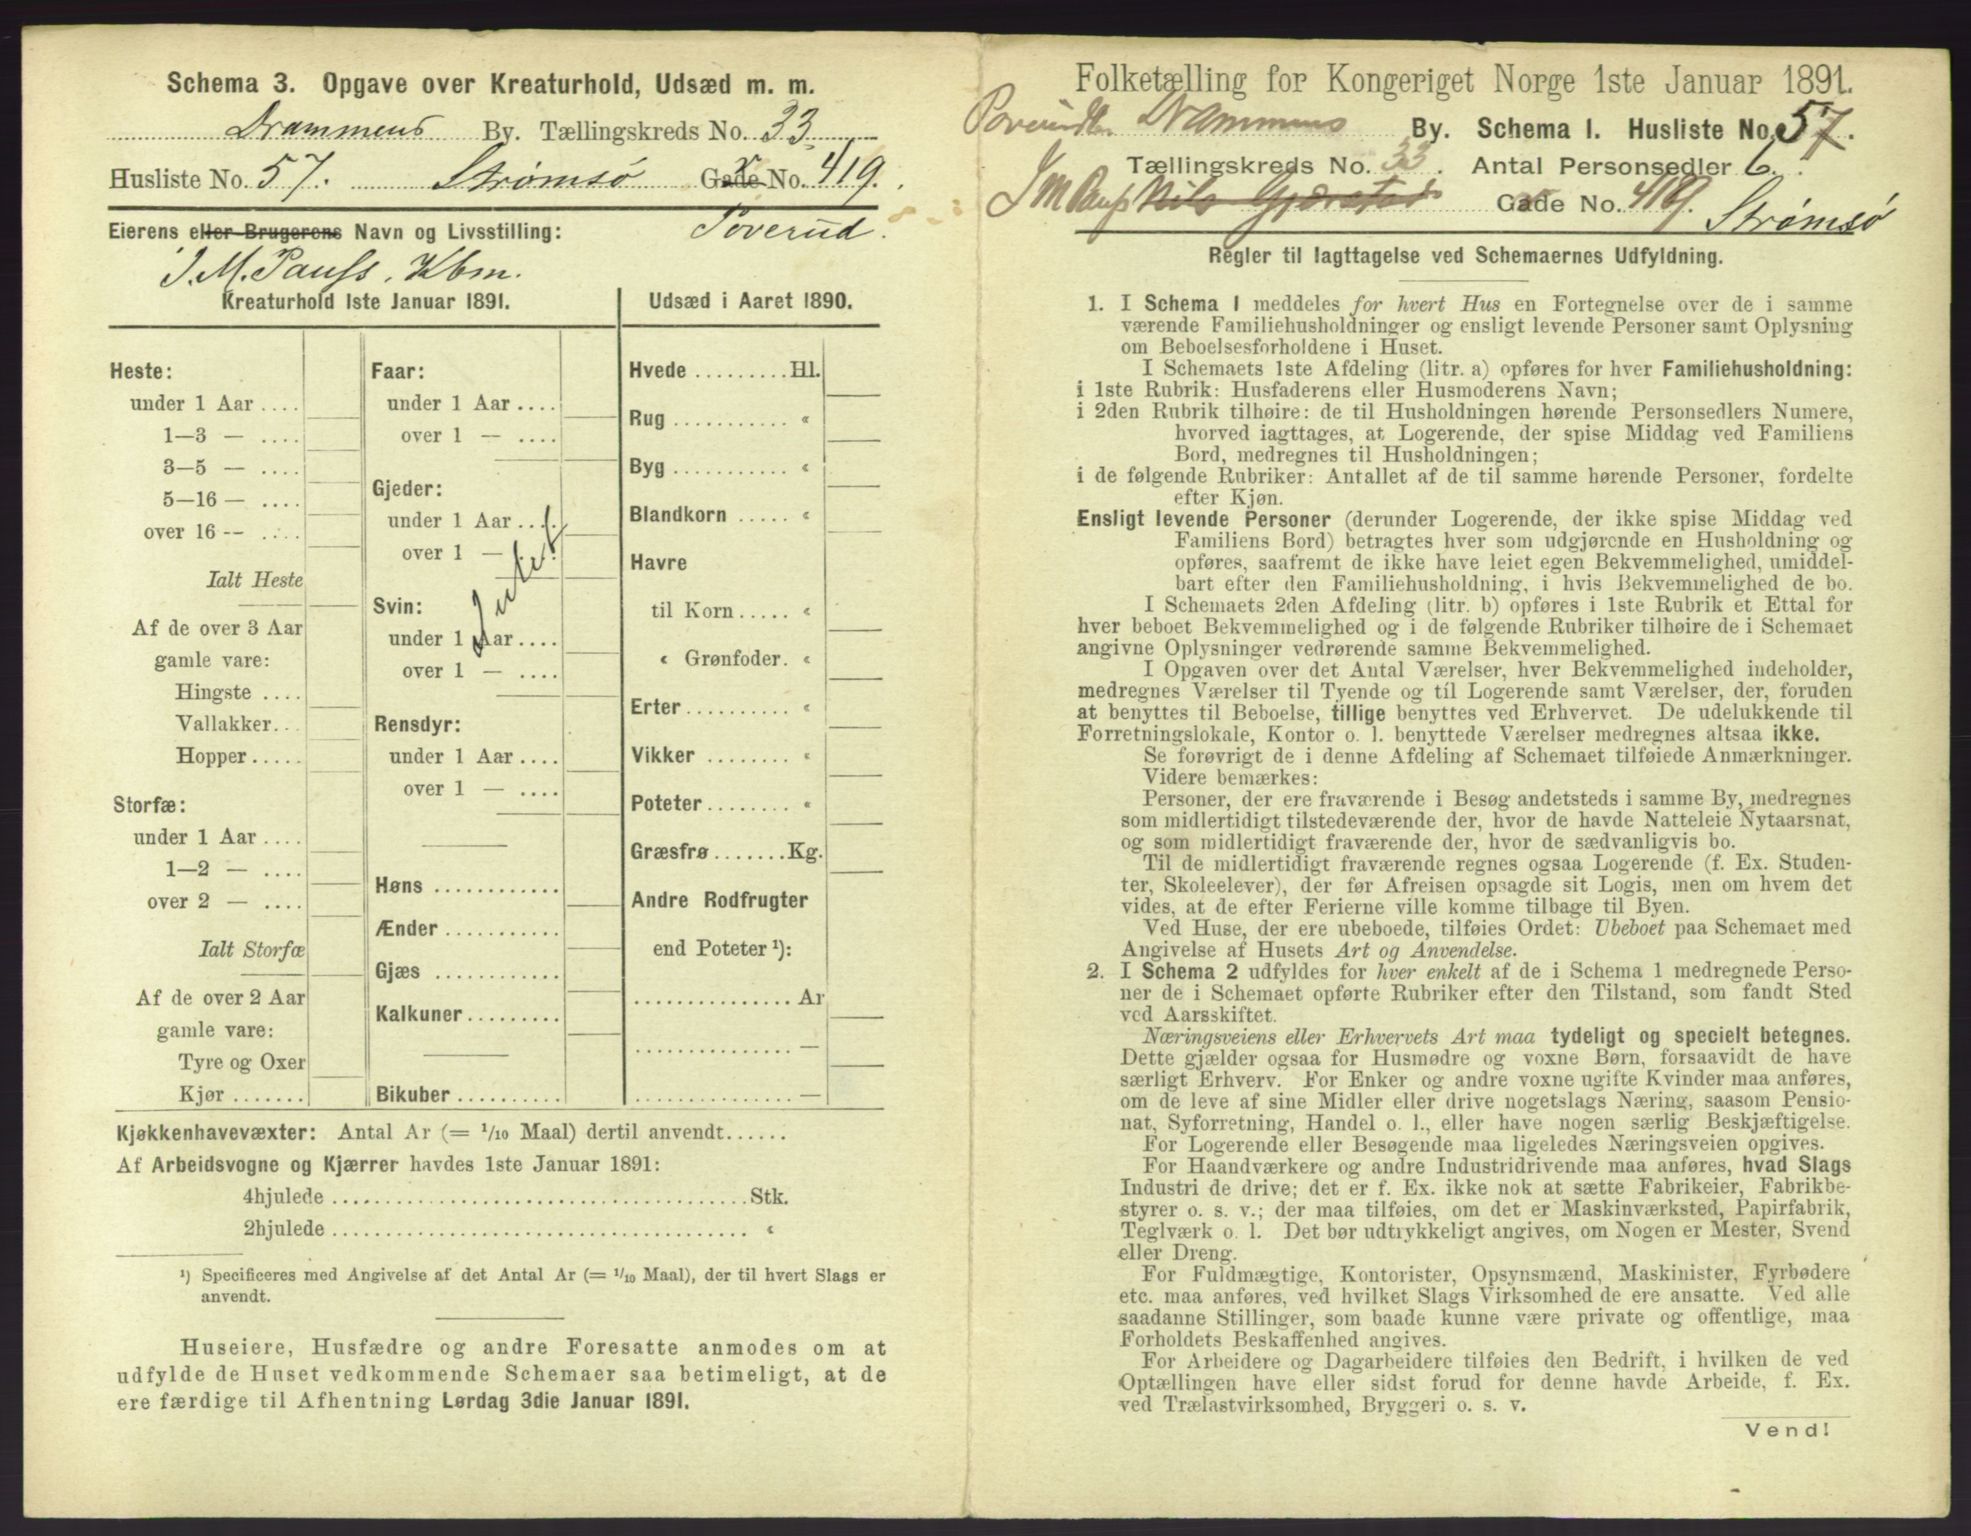 Schema 3. Opgave over Kreaturhold, Udsæd m. m.
Drammens By. Tællingskreds No. 33.
Husliste No. 57. Strømsø Gade No. 419.
Eierens eller Brugerens Navn og Livsstilling: Toverud.
J. M. Pauss, Kbm.
Kreaturhold 1ste Januar 1891.
Heste:
under 1 Aar ....
1—3 — ....
3—5 — ....
5—16 — ....
over 16 -- ....
Ialt Heste
Af de over 3 Aar
gamle vare:
Hingste ....
Vallakker...
Hopper.....
Storfæ:
under 1 Aar ....
1—2 — ....
over 2 — ....
Ialt Storfæ
Af de over 2 Aar
gamle vare:
Tyre og Oxer
Kjør .......
Faar:
under 1 Aar ....
over 1 — ....
Gjeder:
under 1 Aar ....
over 1 — ....
Intet.
Svin:
under 1 Aar ....
over 1 — ....
Rensdyr:
under 1 Aar ....
over 1 — ....
Høns ............
Ænder ...........
Gjæs ............
Kalkuner.........
Bikuber ..........
Udsæd i Aaret 1890.
Hvede .........Hl.
Rug ........... «
Byg ........... «
Blandkorn ..... «
Havre
til Korn ..... «
« Grønfoder. «
Erter.......... «
Vikker ........ «
Poteter........ «
Græsfrø.......Kg.
Andre Rodfrugter
end Poteter ¹):
............... Ar
............... —
............... —
Kjøkkenhavevæxter: Antal Ar (= 1/10 Maal) dertil anvendt......
Af Arbeidsvogne og Kjærrer havdes 1ste Januar 1891:
4hjulede ........................................Stk.
2hjulede ........................................ «
¹) Specificeres med Angivelse af det Antal Ar (= 1/10 Maal), der til hvert Slags er
anvendt.
Huseiere, Husfædre og andre Foresatte anmodes om at
udfylde de Huset vedkommende Schemaer saa betimeligt, at de
ere færdige til Afhentning Lørdag 3die Januar 1891.
Folketælling for Kongeriget Norge 1ste Januar 1891.
Drammens By. Schema I. Husliste No. 57.
Tællingskreds No. 33. Antal Personsedler 6.
J M Paus Nils Gjærstad Gade No. 419. Strømsø
Regler til Iagttagelse ved Schemaernes Udfyldning.
1. I Schema 1 meddeles for hvert Hus en Fortegnelse over de i samme
værende Familiehusholdninger og ensligt levende Personer samt Oplysning
om Beboelsesforholdene i Huset.
I Schemaets 1ste Afdeling (litr. a) opføres for hver Familiehusholdning:
i 1ste Rubrik: Husfaderens eller Husmoderens Navn;
i 2den Rubrik tilhøire: de til Husholdningen hørende Personsedlers Numere,
hvorved iagttages, at Logerende, der spise Middag ved Familiens
Bord, medregnes til Husholdningen;
i de følgende Rubriker: Antallet af de til samme hørende Personer, fordelte
efter Kjøn.
Ensligt levende Personer (derunder Logerende, der ikke spise Middag ved
Familiens Bord) betragtes hver som udgjørende en Husholdning og
opføres, saafremt de ikke have leiet egen Bekvemmelighed, umiddel-
bart efter den Familiehusholdning, i hvis Bekvemmelighed de bo.
I Schemaets 2den Afdeling (litr. b) opføres i 1ste Rubrik et Ettal for
hver beboet Bekvemmelighed og i de følgende Rubriker tilhøire de i Schemaet
angivne Oplysninger vedrørende samme Bekvemmelighed.
I Opgaven over det Antal Værelser, hver Bekvemmelighed indeholder,
medregnes Værelser til Tyende og til Logerende samt Værelser, der, foruden
at benyttes til Beboelse, tillige benyttes ved Erhvervet. De udelukkende til
Forretningslokale, Kontor o. l. benyttede Værelser medregnes altsaa ikke.
Se forøvrigt de i denne Afdeling af Schemaet tilføiede Anmærkninger.
Videre bemærkes:
Personer, der ere fraværende i Besøg andetsteds i samme By, medregnes
som midlertidigt tilstedeværende der, hvor de havde Natteleie Nytaarsnat,
og som midlertidigt fraværende der, hvor de sædvanligvis bo.
Til de midlertidigt fraværende regnes ogsaa Logerende (f. Ex. Studen-
ter, Skoleelever), der før Afreisen opsagde sit Logis, men om hvem det
vides, at de efter Ferierne ville komme tilbage til Byen.
Ved Huse, der ere ubeboede, tilføies Ordet: Ubeboet paa Schemaet med
Angivelse af Husets Art og Anvendelse.
2. I Schema 2 udfyldes for hver enkelt af de i Schema 1 medregnede Perso-
ner de i Schemaet opførte Rubriker efter den Tilstand, som fandt Sted
ved Aarsskiftet.
Næringsveiens eller Erhvervets Art maa tydeligt og specielt betegnes.
Dette gjælder ogsaa for Husmødre og voxne Børn, forsaavidt de have
særligt Erhverv. For Enker og andre voxne ugifte Kvinder maa anføres,
om de leve af sine Midler eller drive nogetslags Næring, saasom Pensio-
nat, Syforretning, Handel o. l., eller have nogen særlig Beskjæftigelse.
For Logerende eller Besøgende maa ligeledes Næringsveien opgives.
For Haandværkere og andre Industridrivende maa anføres, hvad Slags
Industri de drive; det er f. Ex. ikke nok at sætte Fabrikeier, Fabrikbe-
styrer o. s. v.; der maa tilføies, om det er Maskinværksted, Papirfabrik,
Teglværk o. l. Det bør udtrykkeligt angives, om Nogen er Mester, Svend
eller Dreng.
For Fuldmægtige, Kontorister, Opsynsmænd, Maskinister, Fyrbødere
etc. maa anføres, ved hvilket Slags Virksomhed de ere ansatte. Ved alle
saadanne Stillinger, som baade kunne være private og offentlige, maa
Forholdets Beskaffenhed angives.
For Arbeidere og Dagarbeidere tilføies den Bedrift, i hvilken de ved
Optællingen have eller sidst forud for denne havde Arbeide, f. Ex.
ved Trælastvirksomhed, Bryggeri o. s. v.
Vend!